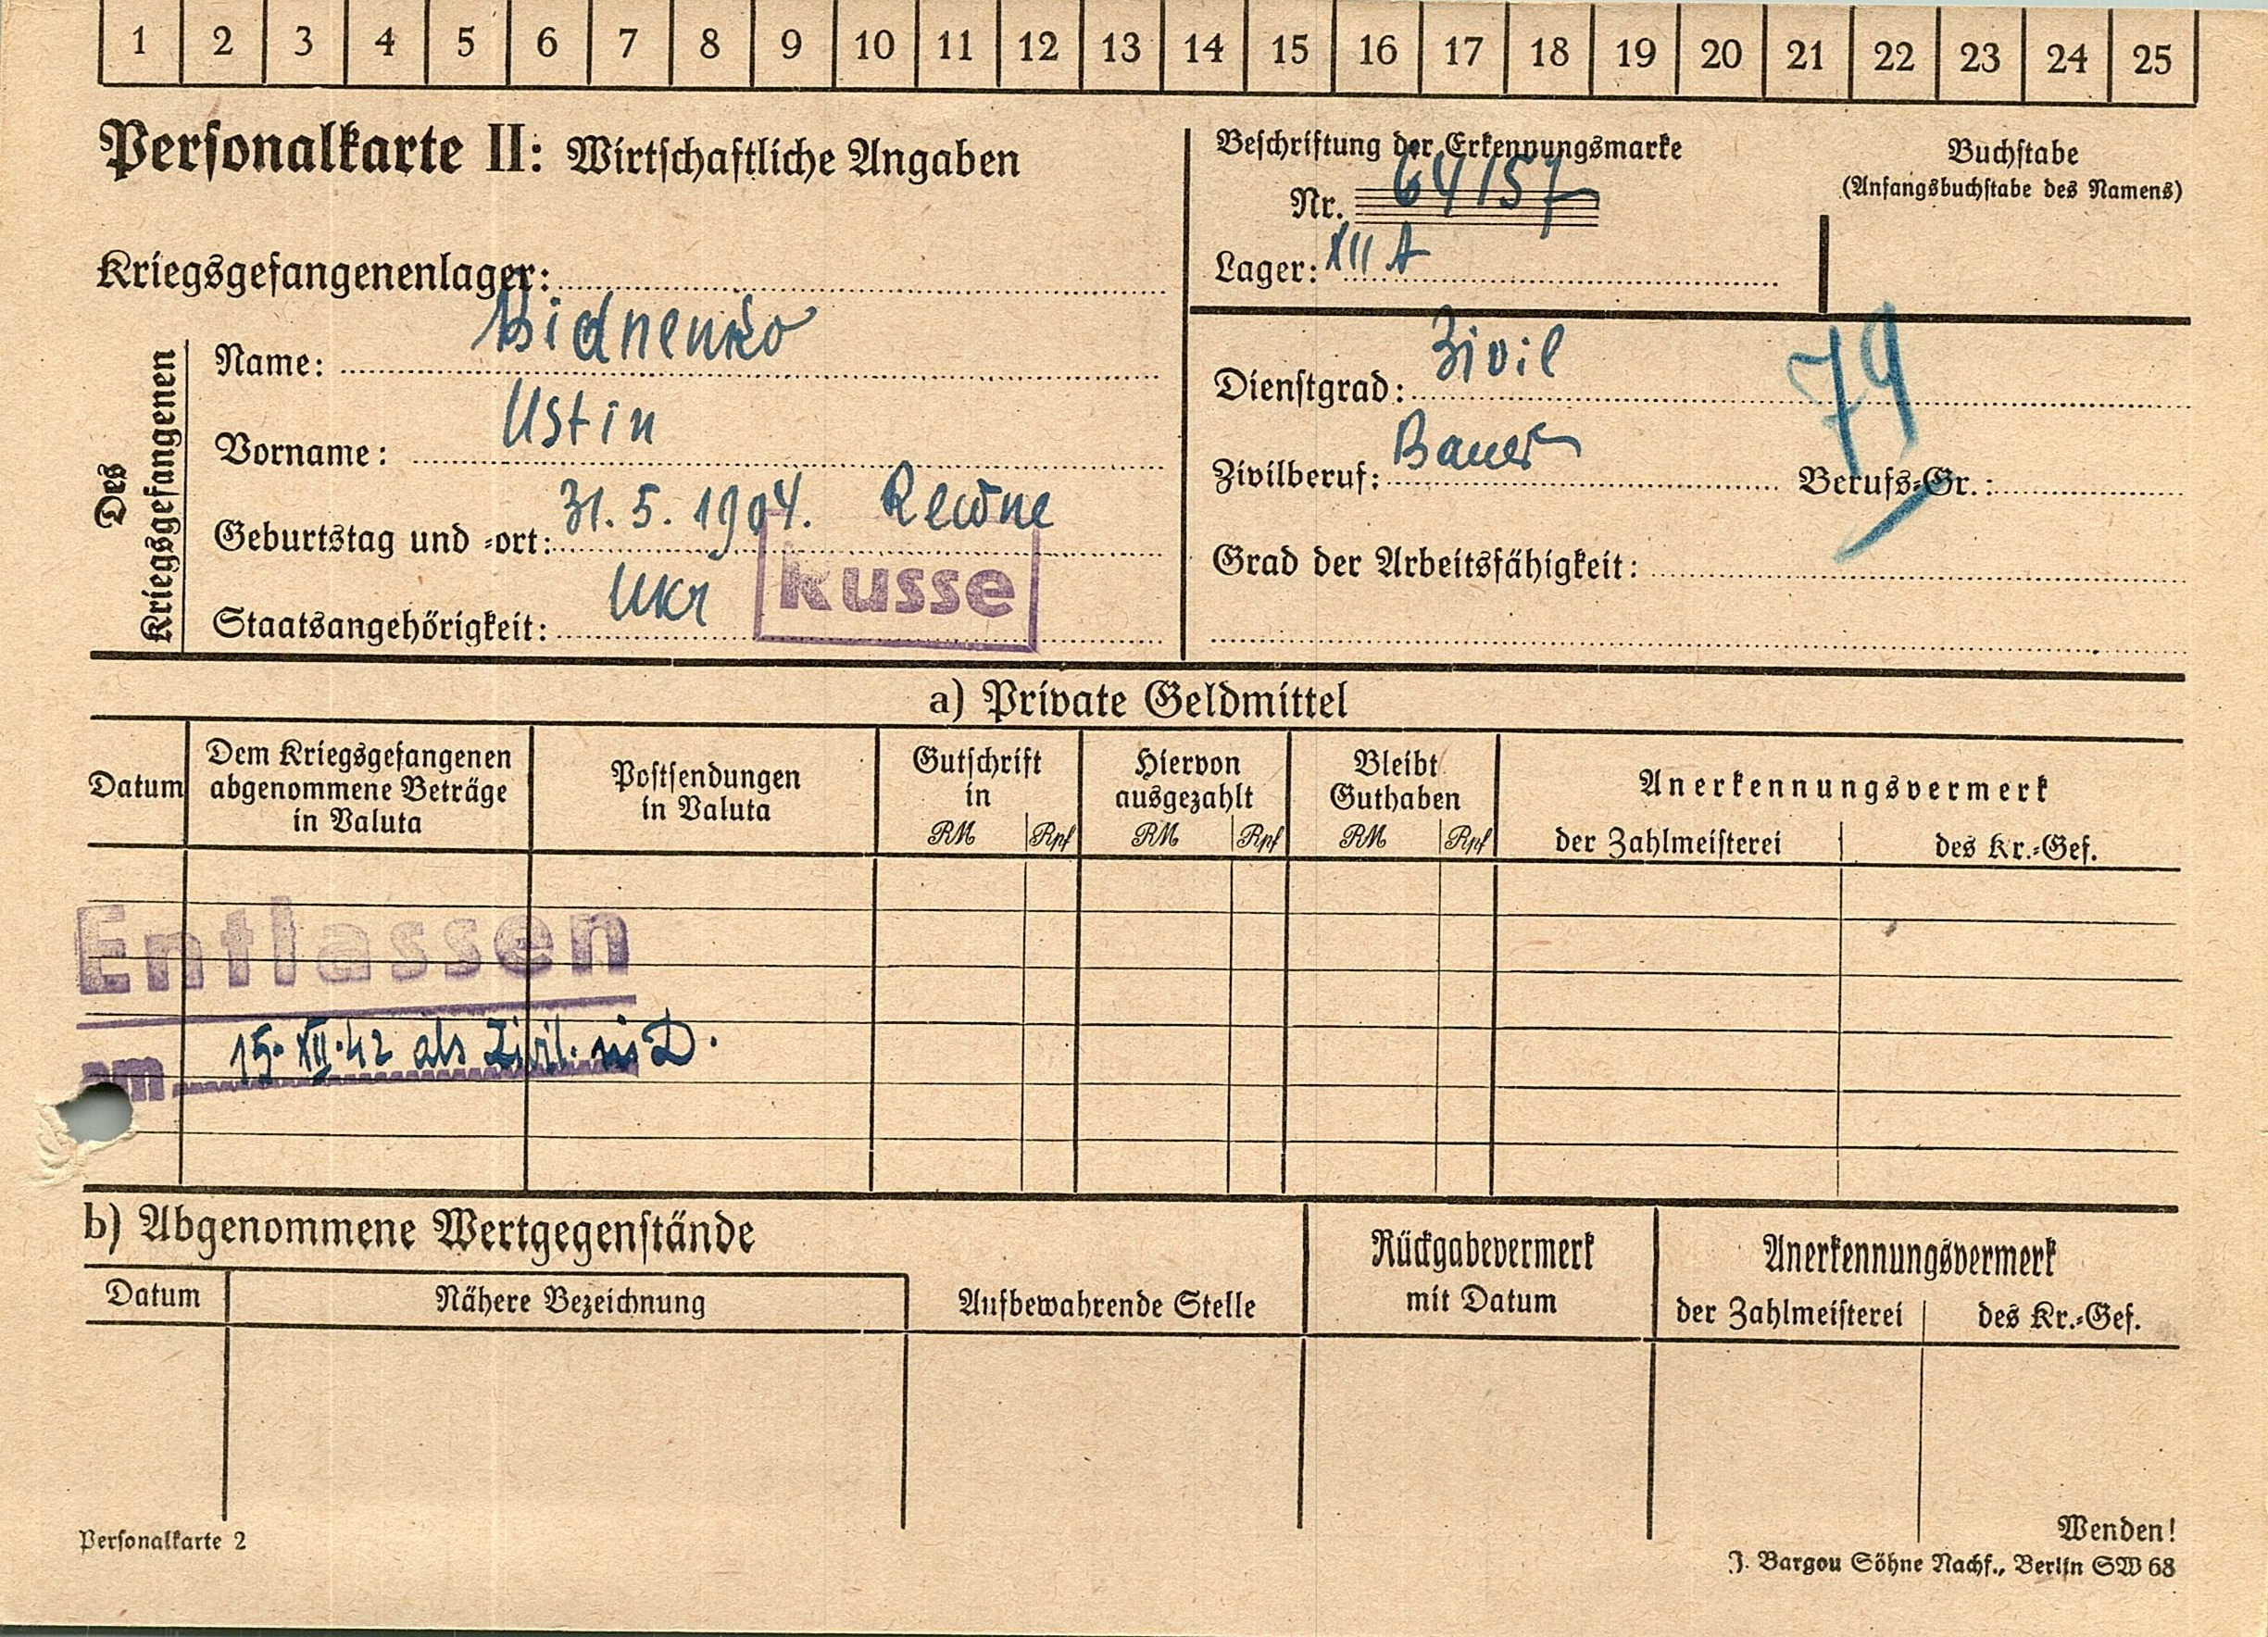 1 2 3 4 5 6 7 8 9 10 11 12 13 14 15 16 17 18 19 20 21 22 23 24 25
Personalkarte II: Wirtschaftliche Angaben
Beschriftung der Erkennungsmarke
Nr. 64157
Lager: XII A
Buchstabe
(Anfangsbuchstabe des Namens)
Kriegsgefangenenlager:
Des Kriegsgefangenen
Name: Bidnenko
Vorname: Ustin
Geburtstag und -ort: 31. 5. 1904. Rewne
Staatsangehörigkeit: Ukr Russe
Dienstgrad: Zivil
79
Zivilberuf: Bauer Berufs-Gr.:
Grad der Arbeitsfähigkeit:
a) Private Geldmittel
Datum
Dem Kriegsgefangenen
abgenommene Beträge
in Valuta
Postsendungen
in Valuta
Gutschrift
in
RM Rpf
Hiervon
ausgezahlt
RM Rpf
Bleibt
Guthaben
RM Rpf
Anerkennungsvermerk
der Zahlmeisterei des Kr.-Gef.
Entlassen
am 15. XII. 42 als Zivil. in D.
b) Abgenommene Wertgegenstände
Datum Nähere Bezeichnung Aufbewahrende Stelle
Rückgabevermerk
mit Datum
Anerkennungsvermerk
der Zahlmeisterei des Kr.-Gef.
Personalkarte 2
Wenden!
J. Bargou Söhne Nachf., Berlin SW 68